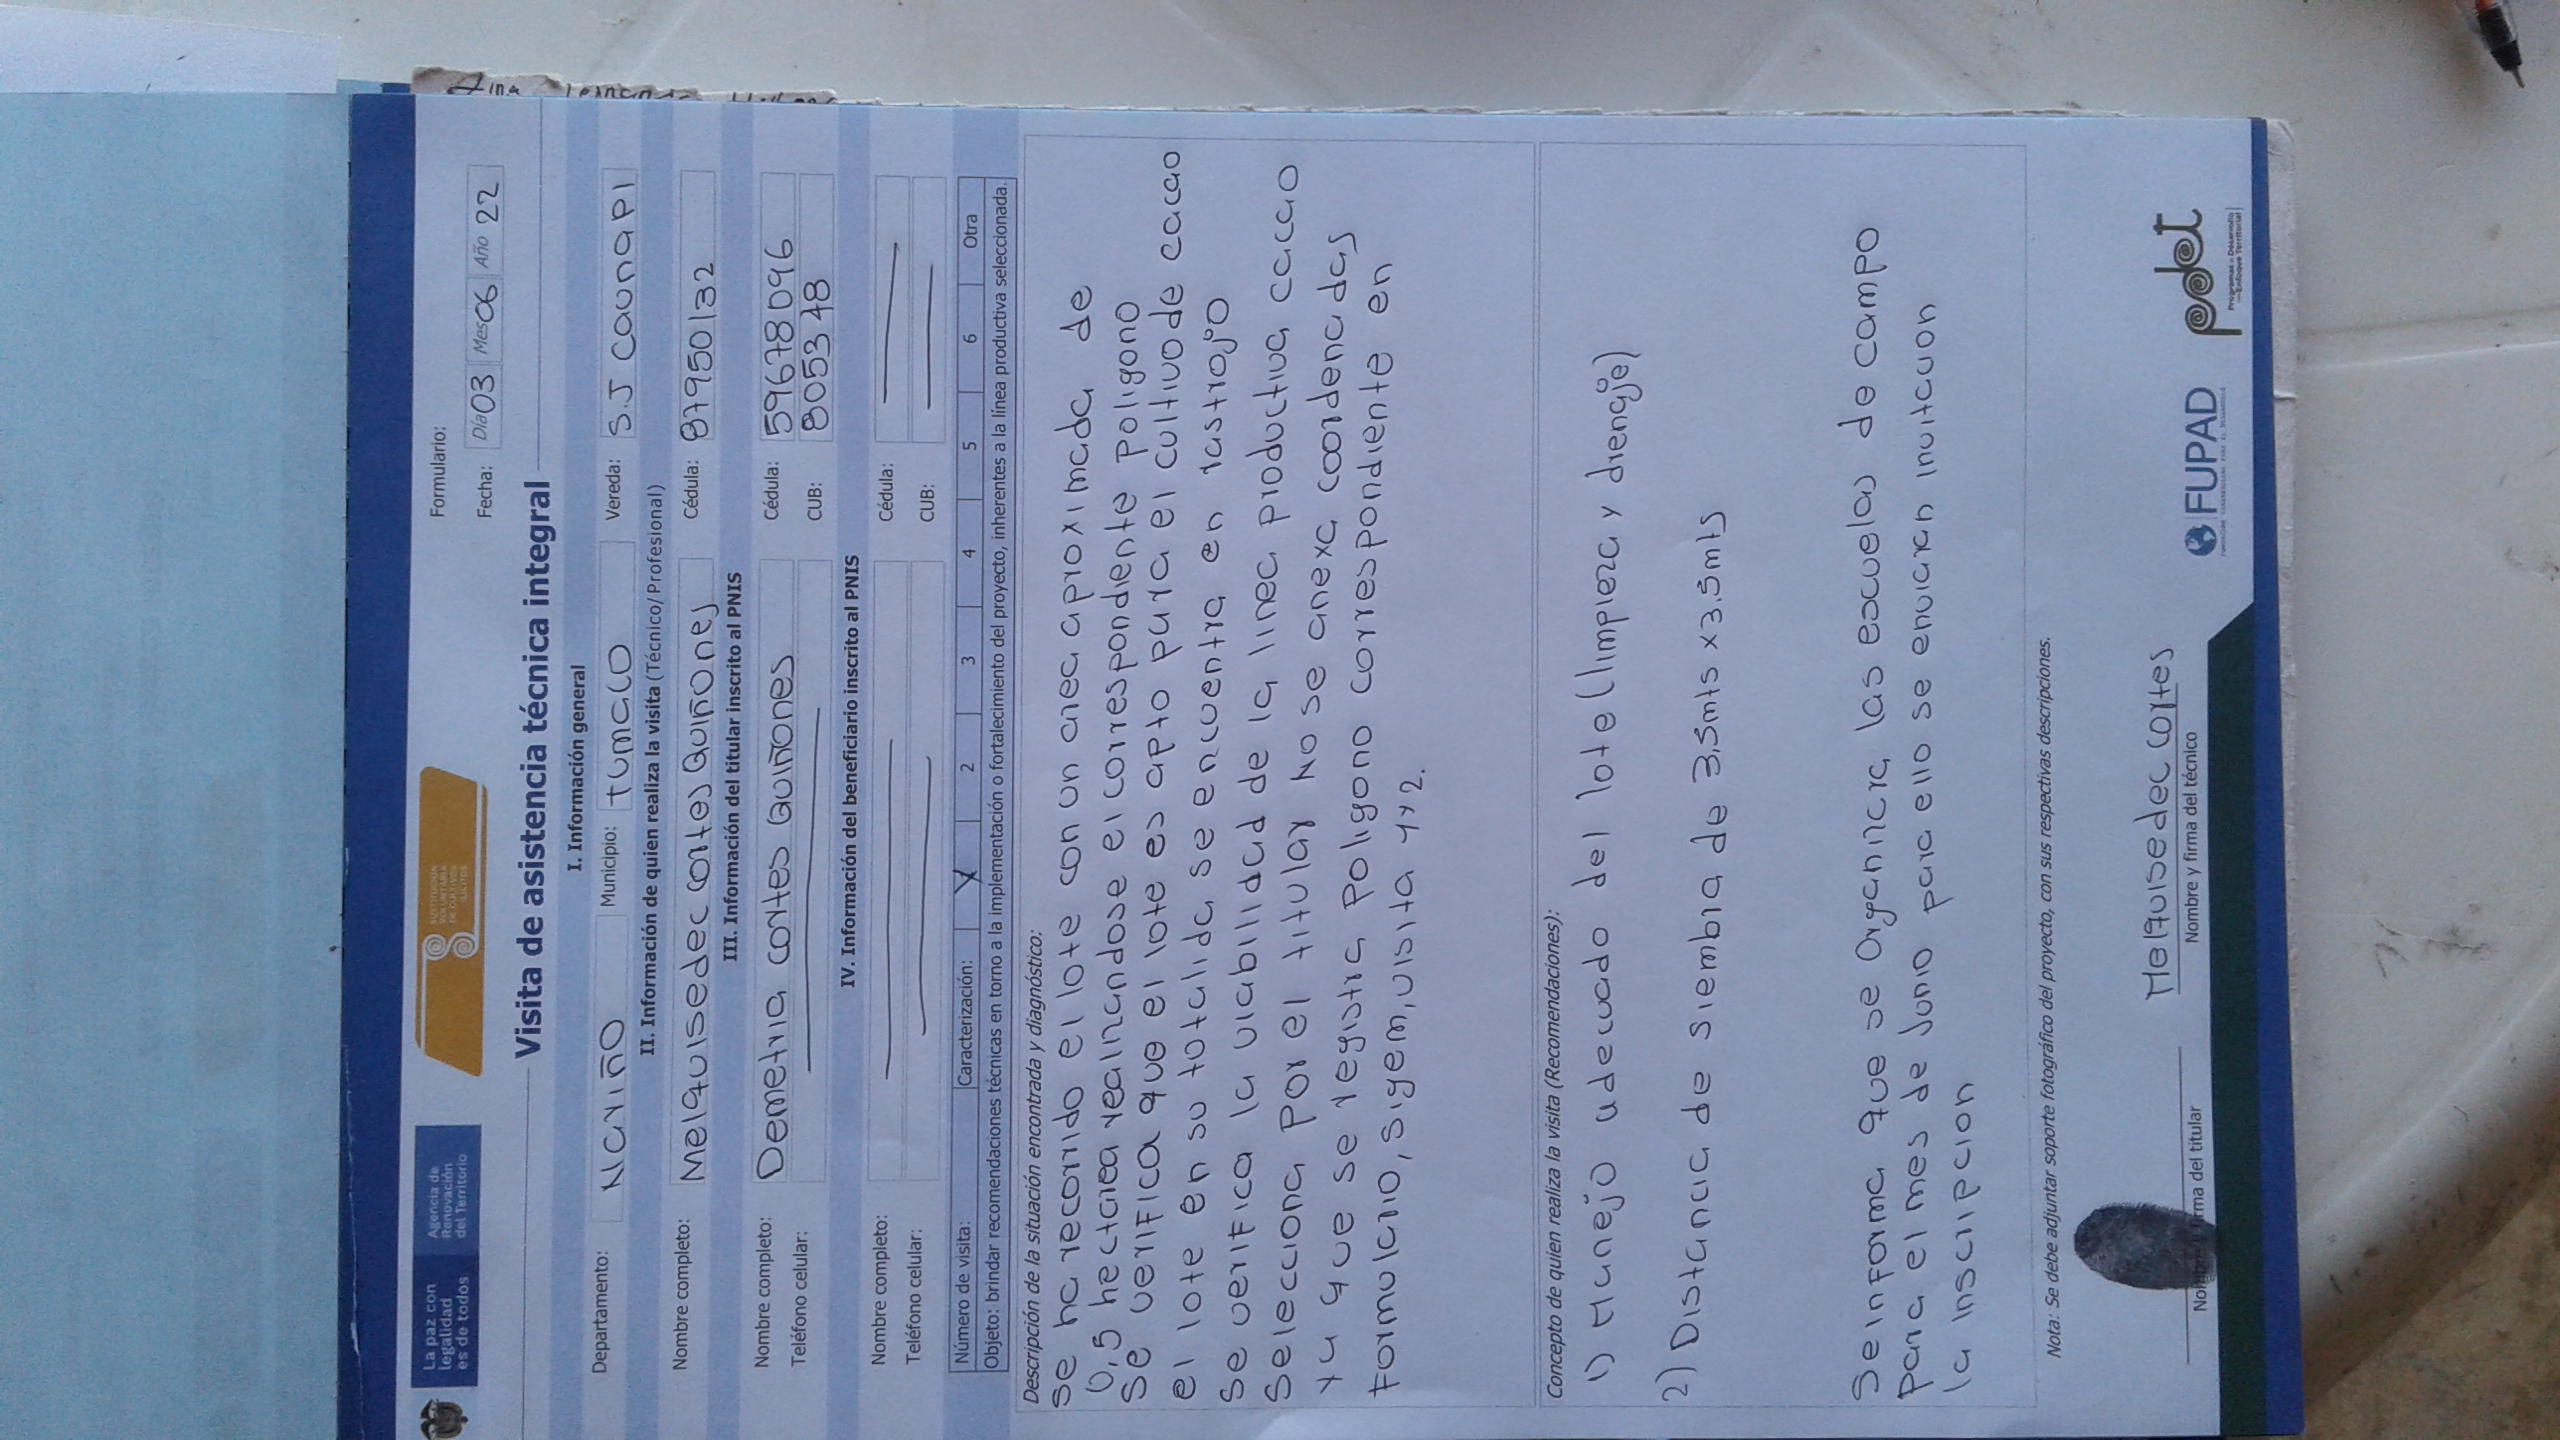 La paz con
legalidad
es de todos
Agencia de
Renovación
del Territorio
SUSTITUCIÓN
VOLUNTARIA
DE CULTIVOS
ILÍCITOS
Formulario:
Fecha: Día 03 Mes 06 Año 22
Visita de asistencia técnica integral
I. Información general
Departamento: Nariño Municipio: tumaco Vereda: S.J caunapi
II. Información de quien realiza la visita (Técnico/Profesional)
Nombre completo: Melquisedec cortes Quiñones Cédula: 87950132
III. Información del titular inscrito al PNIS
Nombre completo: Demetria cortes Quiñones Cédula: 59678096
Teléfono celular: CUB: 8053348
IV. Información del beneficiario inscrito al PNIS
Nombre completo: Cédula:
Teléfono celular: CUB:
Número de visita: Caracterización: X 2 3 4 5 6 Otra
Objeto: brindar recomendaciones técnicas en torno a la implementación o fortalecimiento del proyecto, inherentes a la línea productiva seleccionada.
Descripción de la situación encontrada y diagnóstico:
se ha recorrido el lote con un area aproximada de
0,5 hectarea realizandose el correspondiente poligono
se verifica que el lote es apto para el cultivo de cacao
el lote en su totalida se encuentra en rastrojo
se verifica la viabilidad de la linea productiva cacao
selecciona por el titular No se anexa coordenadas
ya que se registra poligono correspondiente en
formulario, sigem, visita 1 y 2.
Concepto de quien realiza la visita (Recomendaciones):
1) Manejo adecuado del lote (limpieza y drenaje)
2) Distancia de siembra de 3,5mts x 3.5mts
Se informa que se organizra las escuelas de campo
para el mes de Junio para ello se enviaran invitacion
la inscripcion
Nota: Se debe adjuntar soporte fotográfico del proyecto, con sus respectivas descripciones.
Melquisedec cortes
firma del titular
Nombre y firma del técnico
FUPAD
pdet
Programas de Desarrollo
con Enfoque Territorial